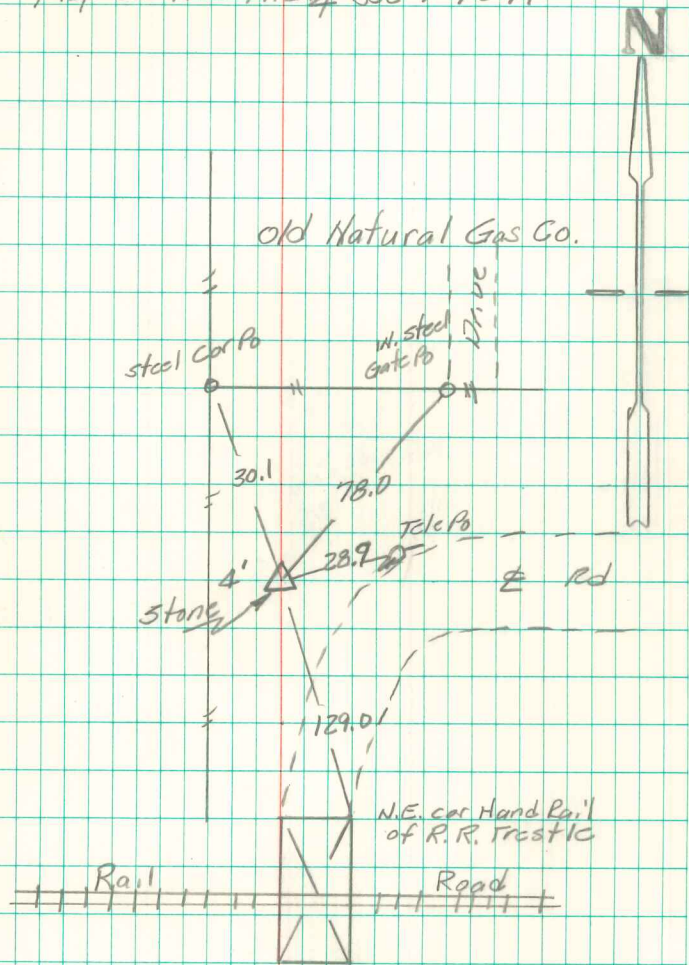 N
old Natural Gas Co.
Drive
W. steel
Gate Po
steel Cor Po
30.1
78.0
Tele Po
28.9
4'
Stone
Rd
129.0
N.E. cor Hand Rail
of R.R. Trestle
Rail Road